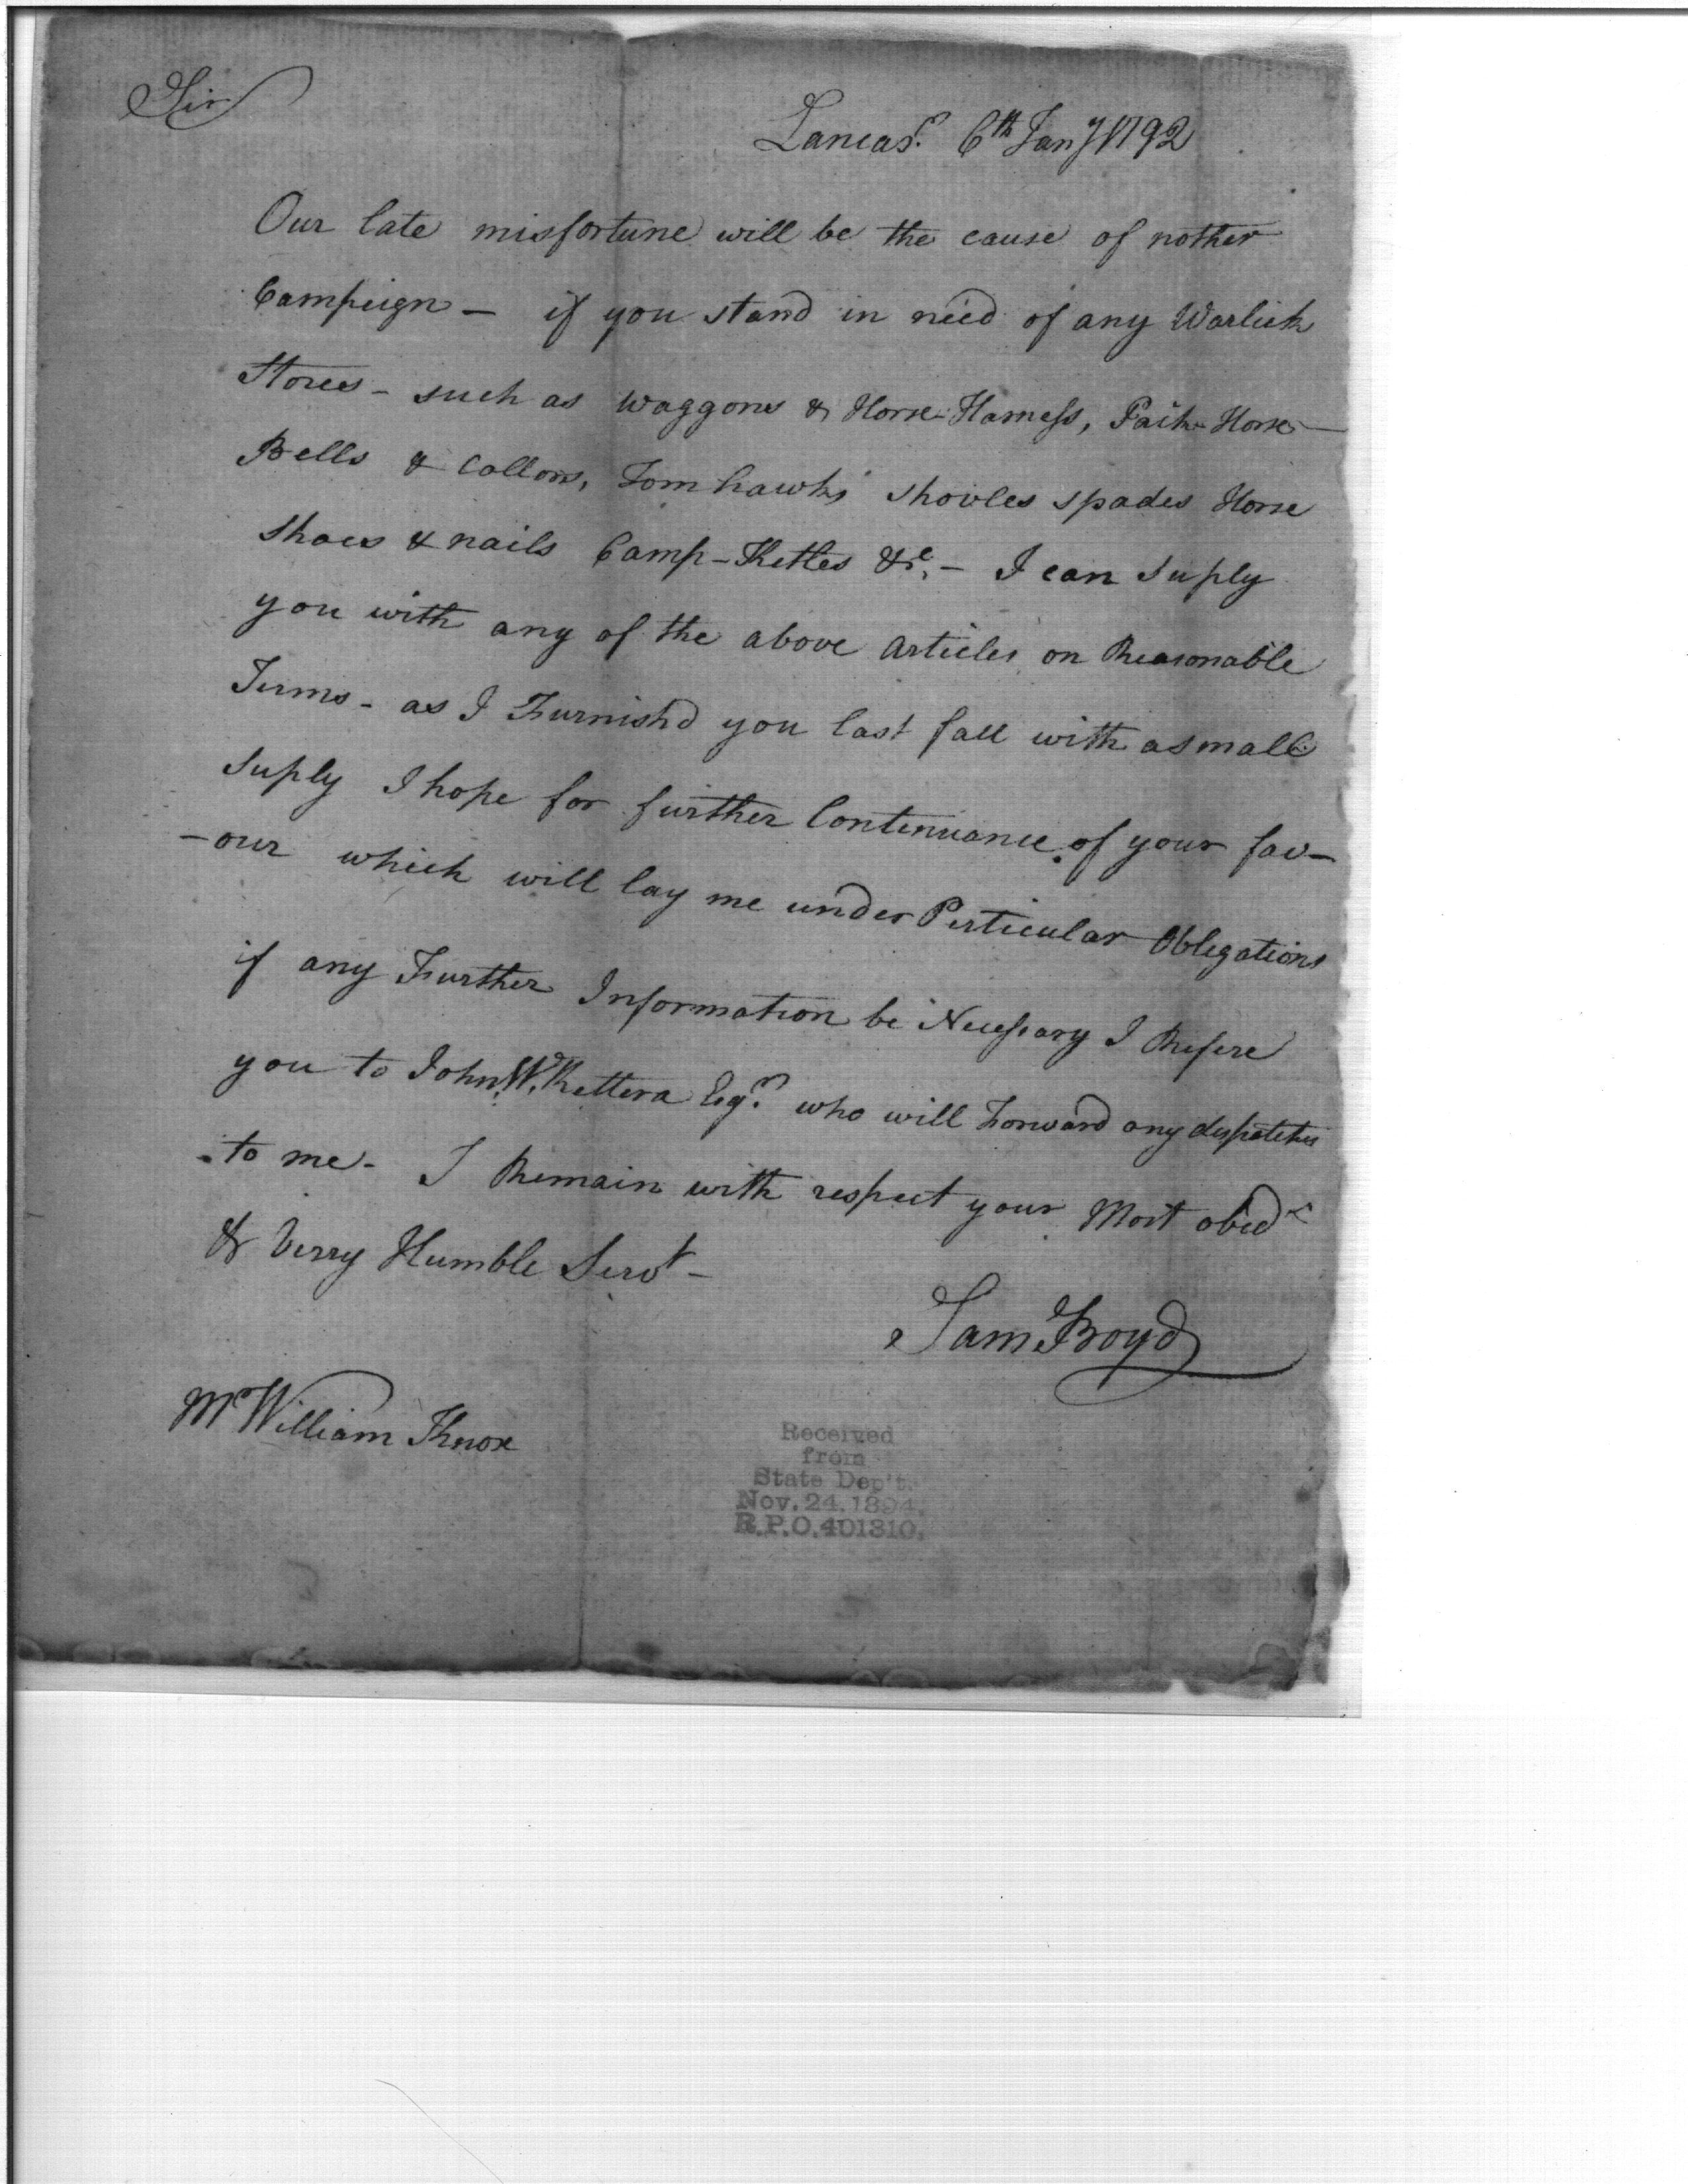 Sir
Lancasr. 6th Jany 1792
Our late misfortune will be the cause of nother
Campeign — if you stand in need of any Warlick
Stores - such as waggons & Horse-Harness, Pack-Horse —
Bells & Collors, Tomhawks shovles spades Horse
Shoes & nails Camp-Kettles &c. — I can Suply
you with any of the above articles on Reasonable
Terms - as I Furnishd you last fall with a small
Suply I hope for further Contenuance of your fav—
—our which will lay me under Perticular Oblegations
if any Further Information be Necessary I Refere
you to John W. Kittera Esqr. who will Forward any dispatches
to me - I Remain with respect your Most obedt
& Verry Humble Servt —
Sam Boyd
Mr William Knox
Received
from
State Dep't.
Nov. 24, 1894.
R.P.O. 401310.